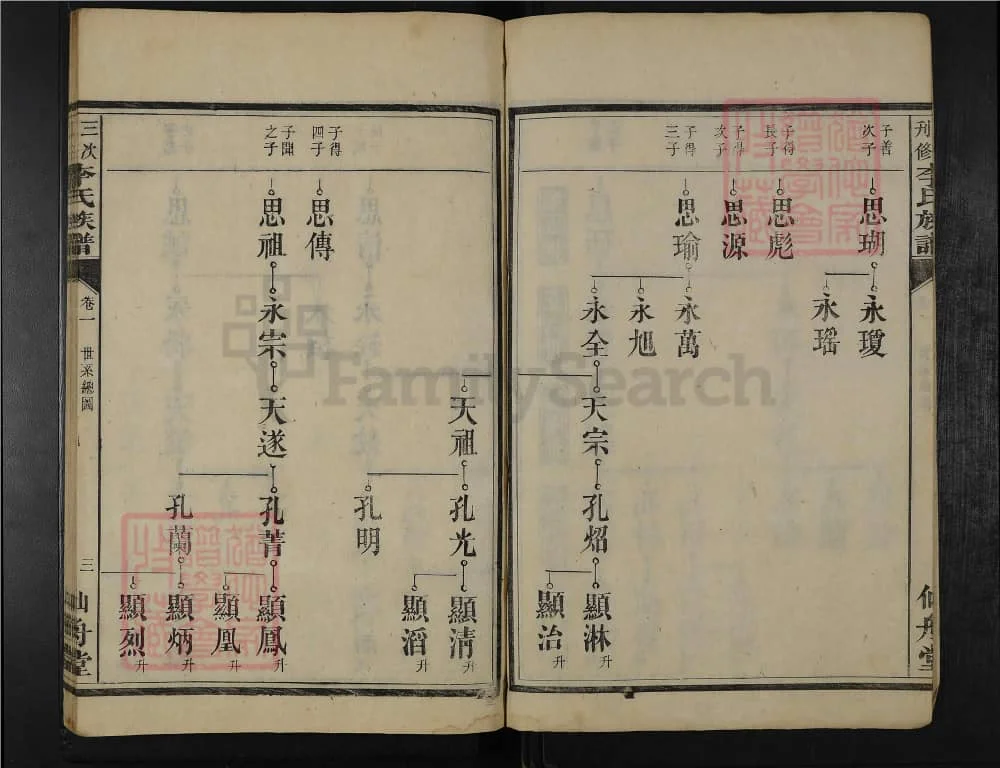 子善
次子
思瑚
永瓊
永瑶
子得
長子
思彪
子得
次子
思源
子得
三子
思瑜
永萬
永旭
永全
天宗
孔炤
顯淋
升
顯治
升
天祖
孔光
顯清
升
顯滔
升
孔明
子得
四子
思傳
之子
思祖
永宗
天遂
孔菁
顯鳳
升
顯凰
升
孔蘭
顯炳
升
顯烈
升
三次李氏族譜
卷一
世系總圖
三
仙舟堂
李氏族譜
FamilySearch